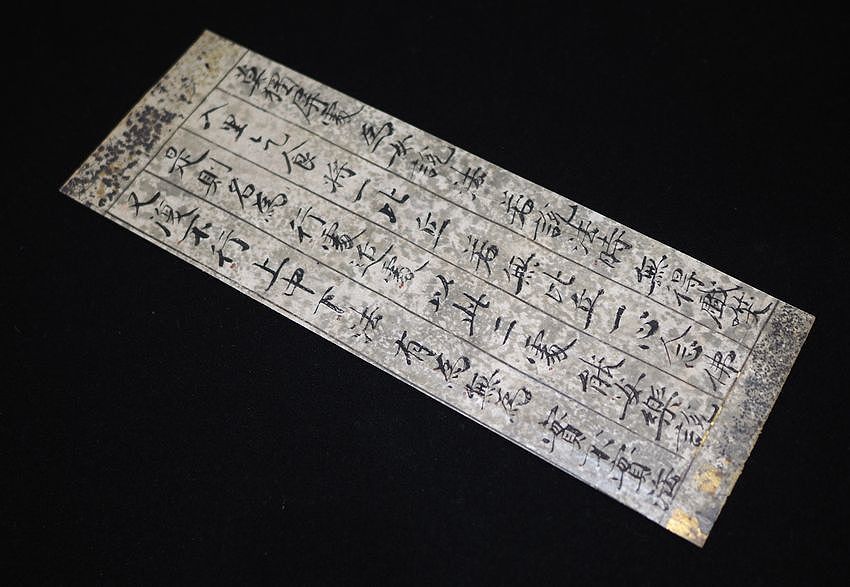 莫獨屏處 為女說法 若說法時 無得戲咲
入里乞食 將一比丘 若無比丘 一心念佛
是則名為 行處近處 以此二處 能安樂說
又復不行 上中下法 有為無為 實不實法